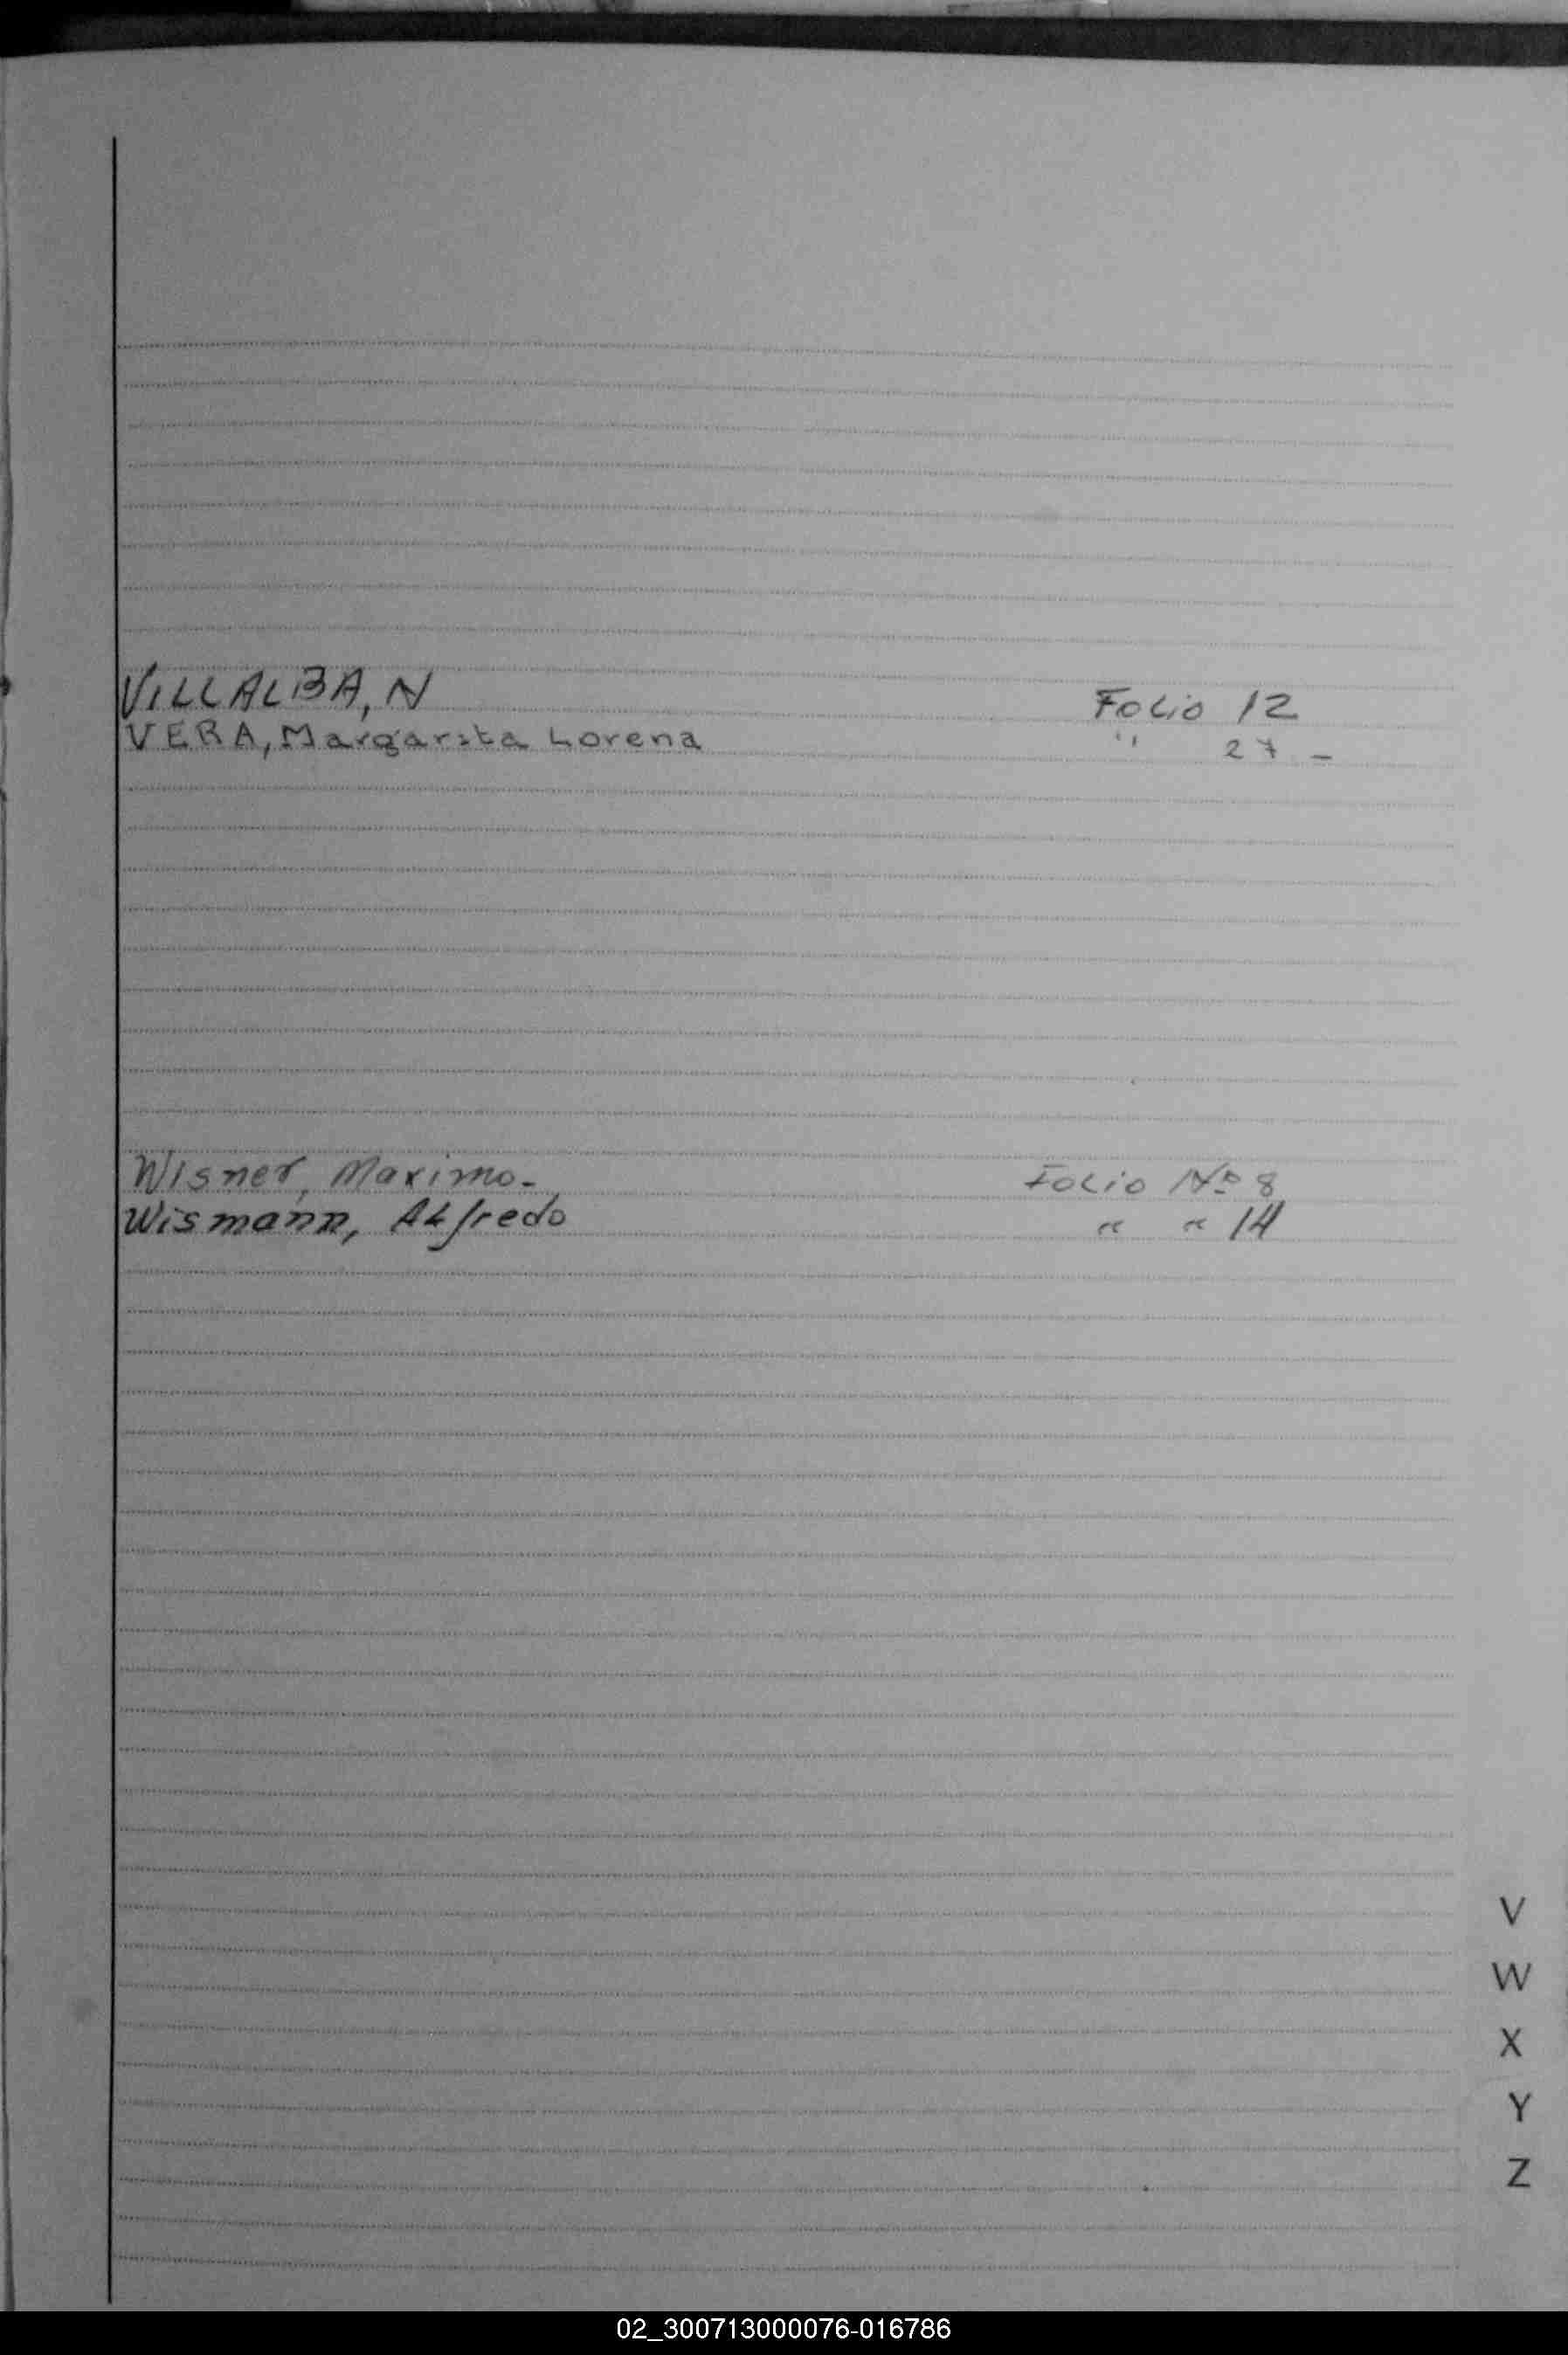 VILLALBA, N Folio 12
VERA, Margarita Lorena " 27 -
Wisner, Maximo- Folio Nº 8
Wismann, Alfredo " " 14
V
W
X
Y
Z
02_300713000076-016786